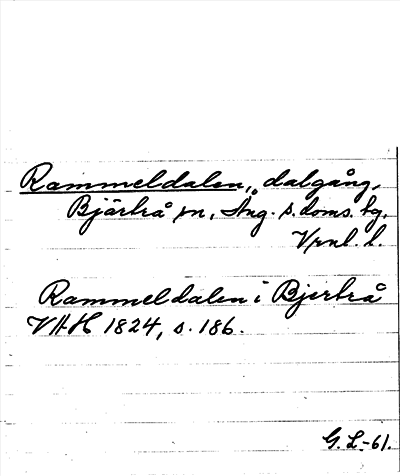 Rammeldalen, dalgång,
Bjärtrå sn, Ång. s. doms. tg.
Vrnl. l.
Rammeldalen i Bjertrå
VAH 1824, s. 186.
G. L.-61.